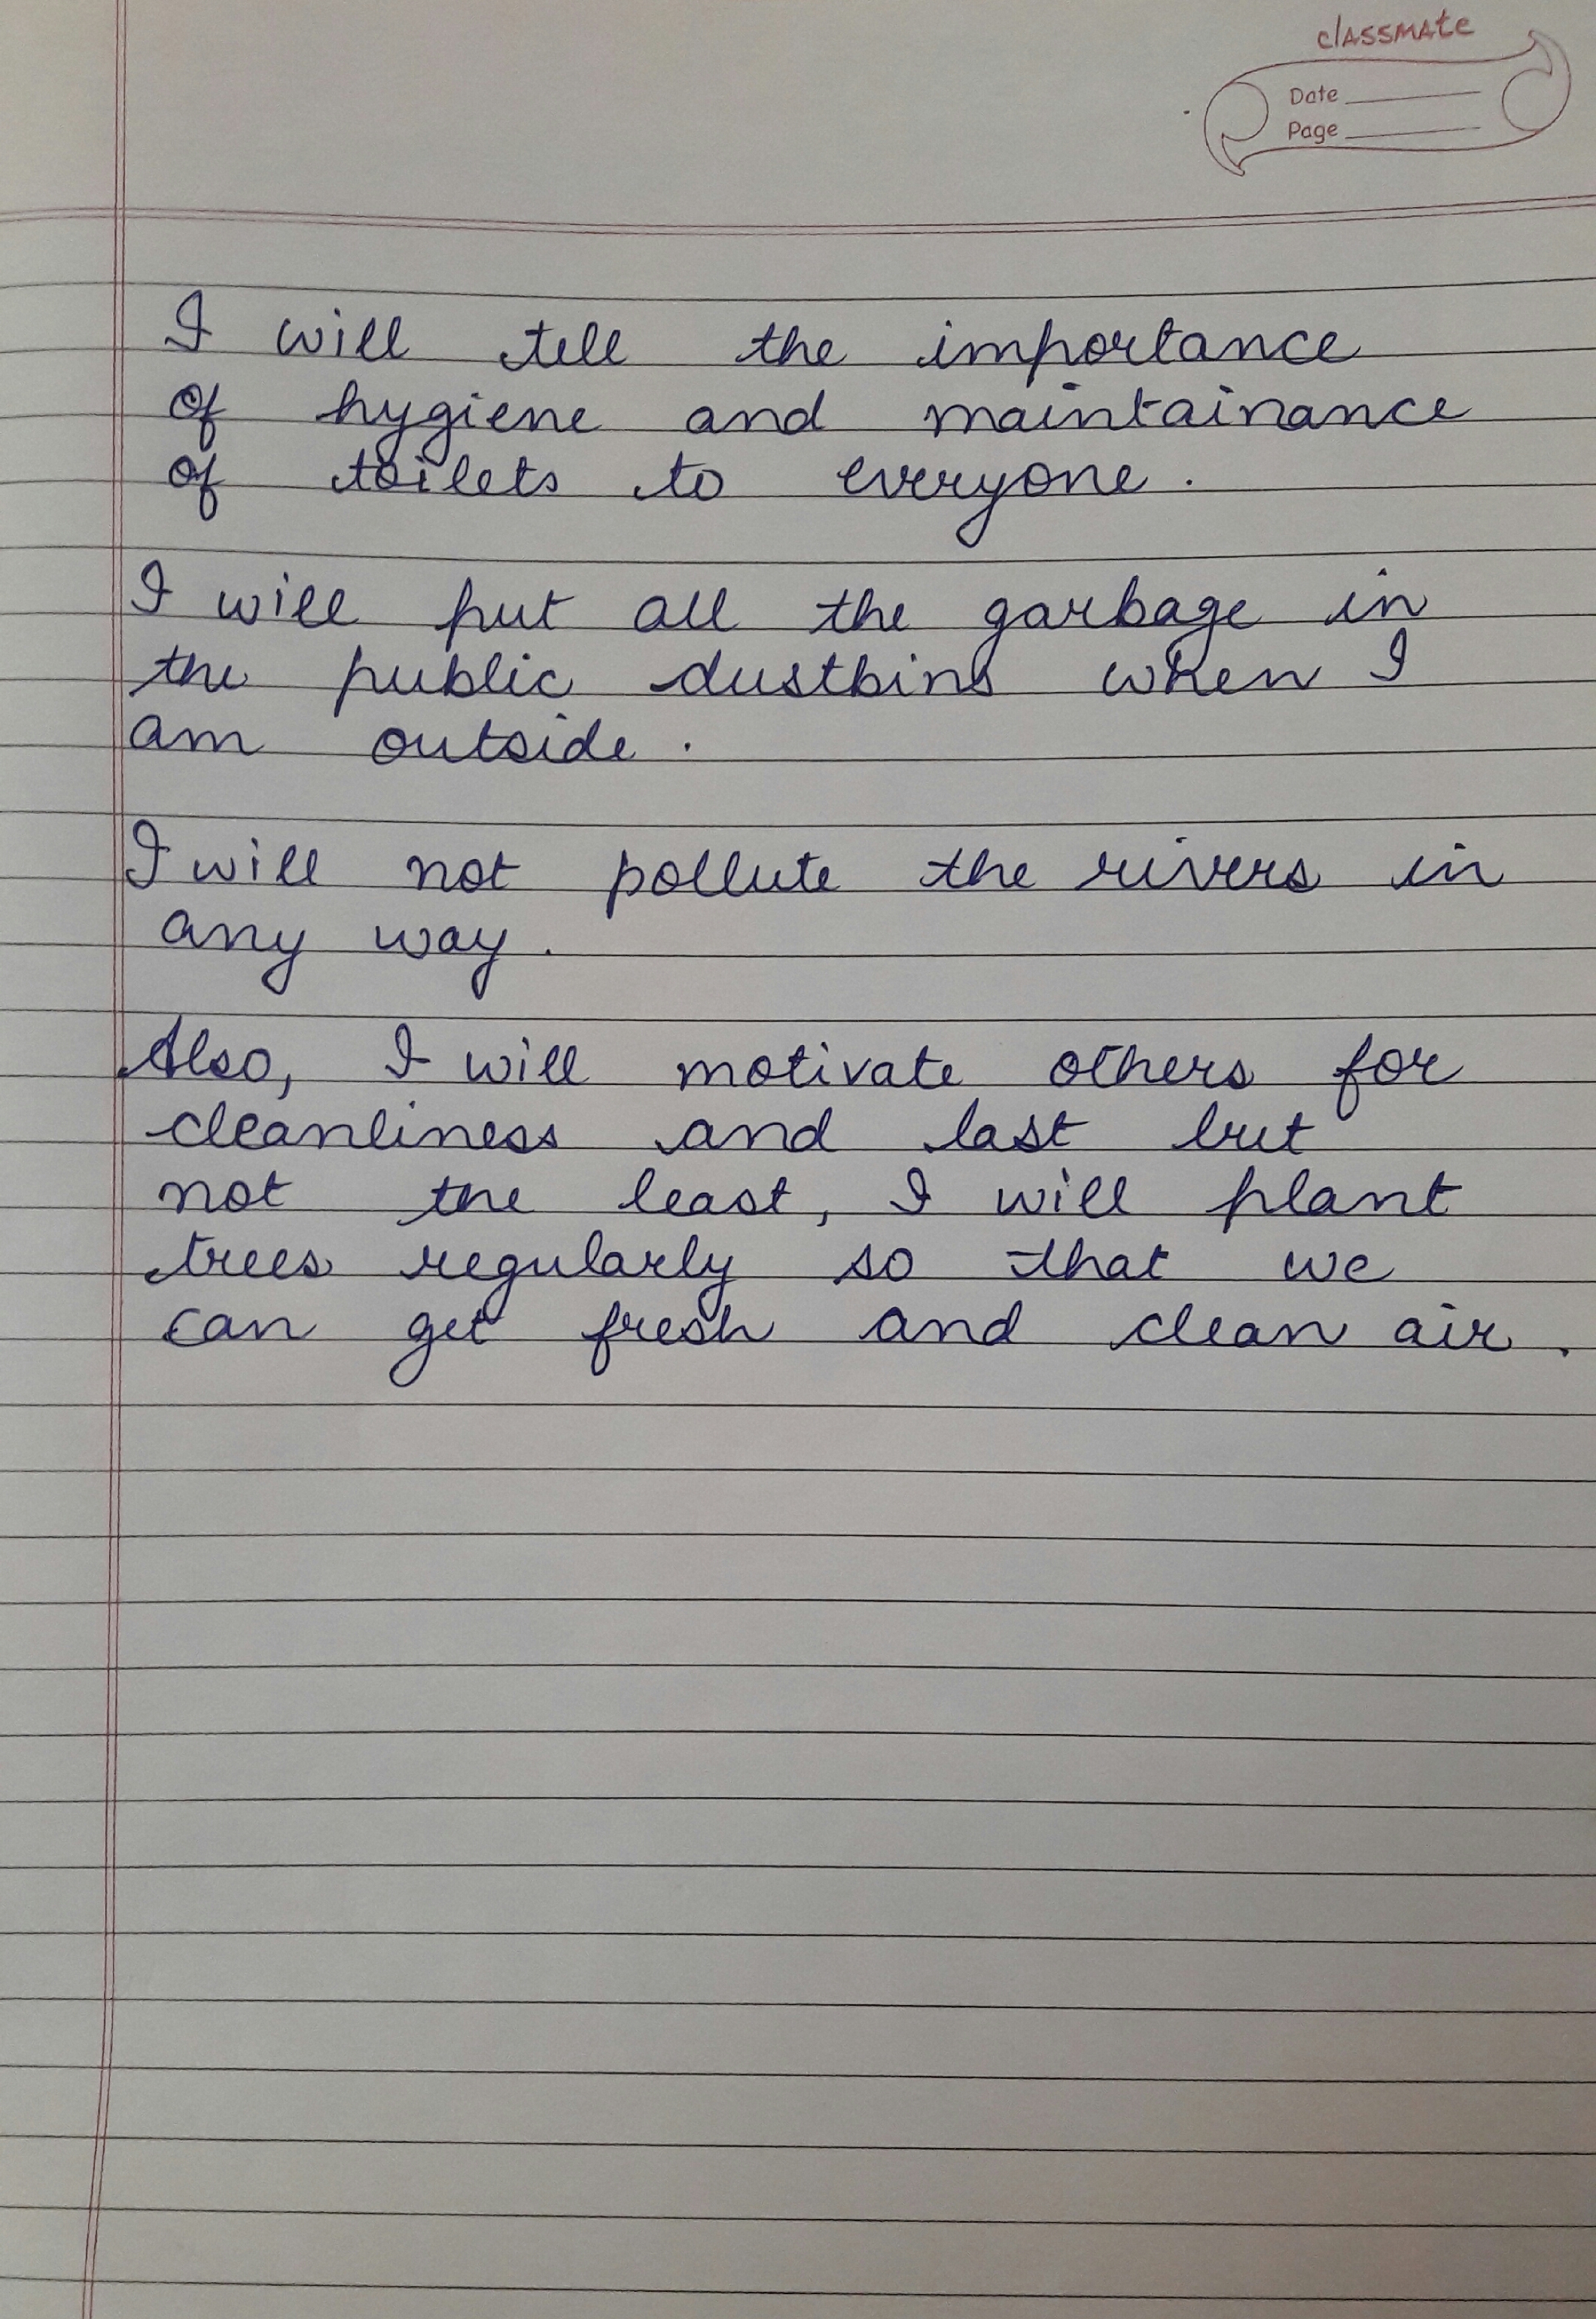 classmate
Date
Page
I will tell the importance
of hygiene and maintainance
of toilets to everyone.
I will put all the garbage in
the public dustbins when I
am outside.
I will not pollute the rivers in
any way.
Also, I will motivate others for
cleanliness and last but
not the least, I will plant
trees regularly so that we
can get fresh and clean air.